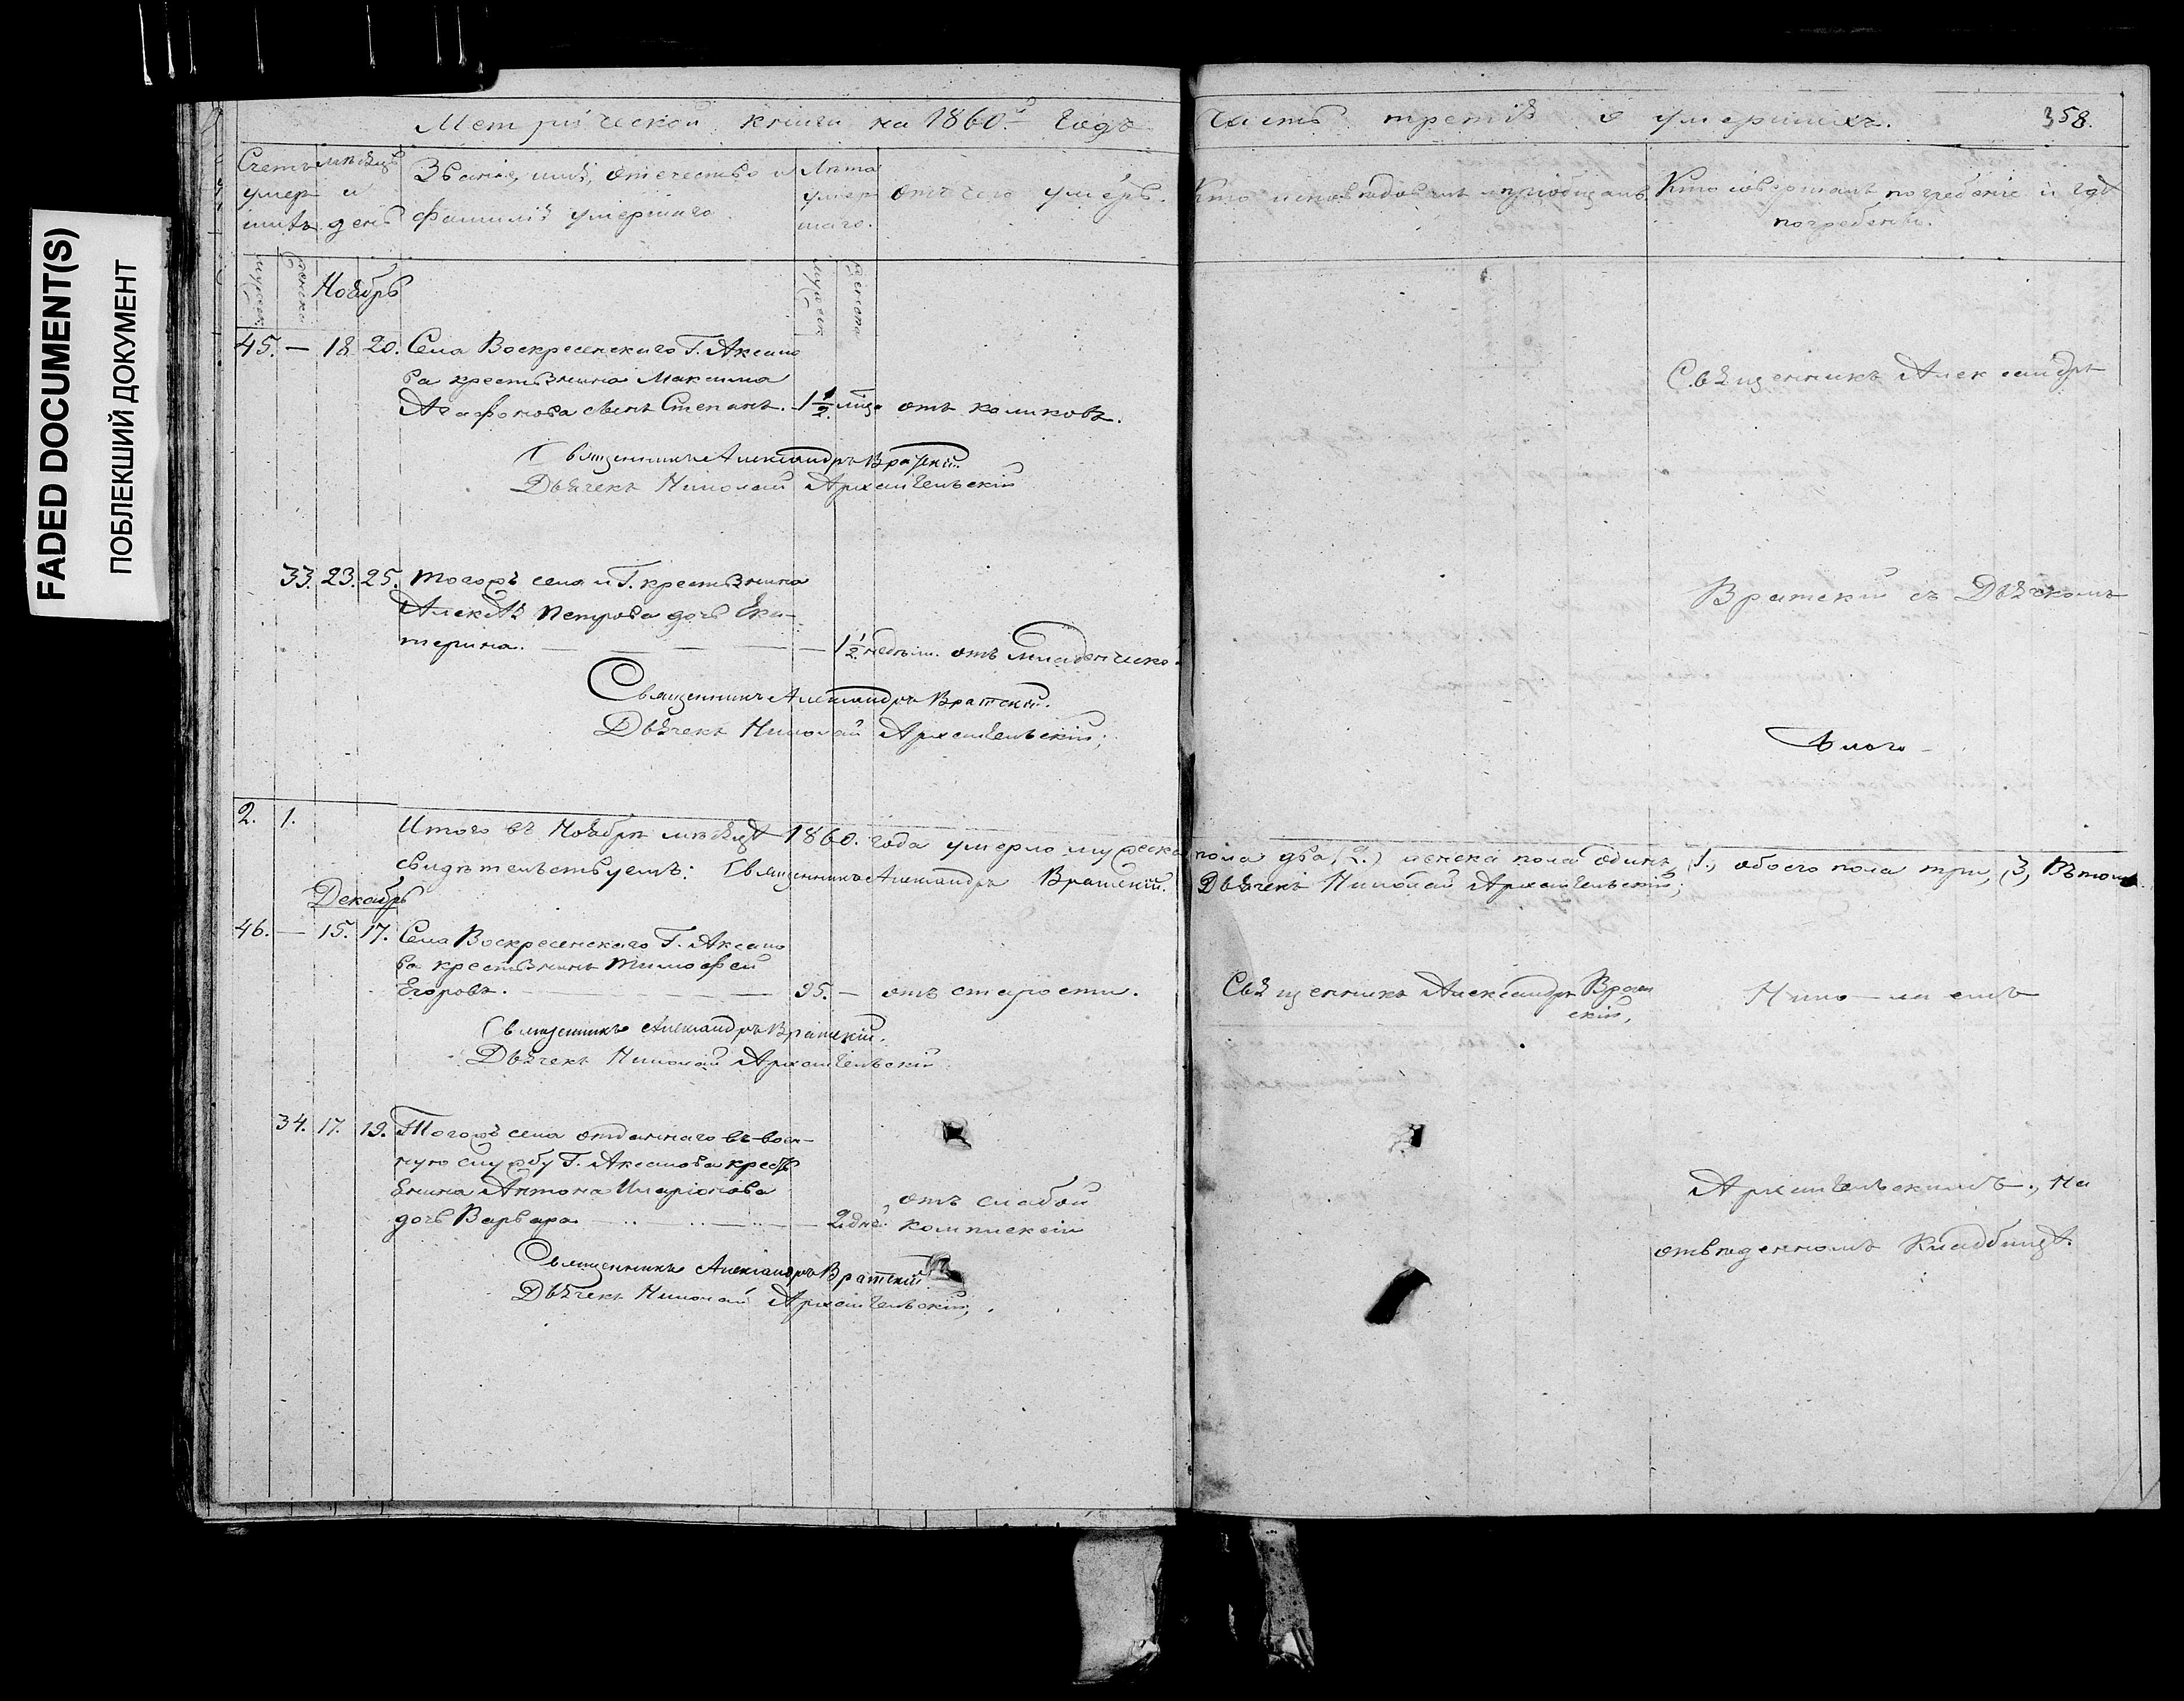 FADED DOCUMENT(S)
ПОБЛЕКШИЙ ДОКУМЕНТ
Метрической книги на 1860.й годъ
Счетъ умер шихъ
мѣсяцъ и день
Званіе, имя, отечество и
фамилія умершаго.
Лѣта умер шаго.
отъ чего умеръ.
мужеск
женска
Ноябрь
мужеск
женска
45. — 18. 20. Села Воскресенскаго Г. Аксако
ва крестьянина Максима
Агафонова сынъ Степанъ. 1 1/2 мѣс отъ коликовъ.
Священникъ Александръ Братскій
Дьячекъ Николай Архангельскій
33. 23. 25. Тогожъ села и Г. крестьянина
Алексѣя Петрова дочь Ека-
терина. 1 1/2 недѣли. отъ младенческо-
Священникъ Александръ Братскій.
Дьячекъ Николай Архангельскій;
2. 1.
Итого въ Ноябрѣ мѣсяцѣ 1860. года умерло мужеска
свидѣтельствуемъ: Священникъ Александръ Братскій.
Декабрь
46. — 15. 17. Села Воскресенскаго Г. Аксако
ва крестьянинъ Тимофей
Егоровъ. 95. — отъ старости.
Священникъ Александръ Братскій.
Дьячекъ Николай Архангельскій
34. 17. 19. Тогожъ села отданнаго въ воен-
ную службу Г. Аксакова кресть
янина Антона Иларіонова
дочь Варвара 2. дн. отъ слабой
комплекціи
Священникъ Александръ Братскій
Дьячекъ Николай Архангельскій;
Часть третія о умершихъ. 358.
Кто исповѣдовалъ и пріобщалъ
Кто совершалъ погребеніе и гдѣ
погребены.
Священникъ Александръ
Братскій съ Дьячкомъ
пола два (2.) женска пола одинъ (1., обоего пола три, (3, Въ томъ
Дьячекъ Николай Архангельскій;
Священникъ Александръ Брат
скій,
Нико-лаемъ
Архангельскимъ., на
отведенномъ Кладбищѣ.